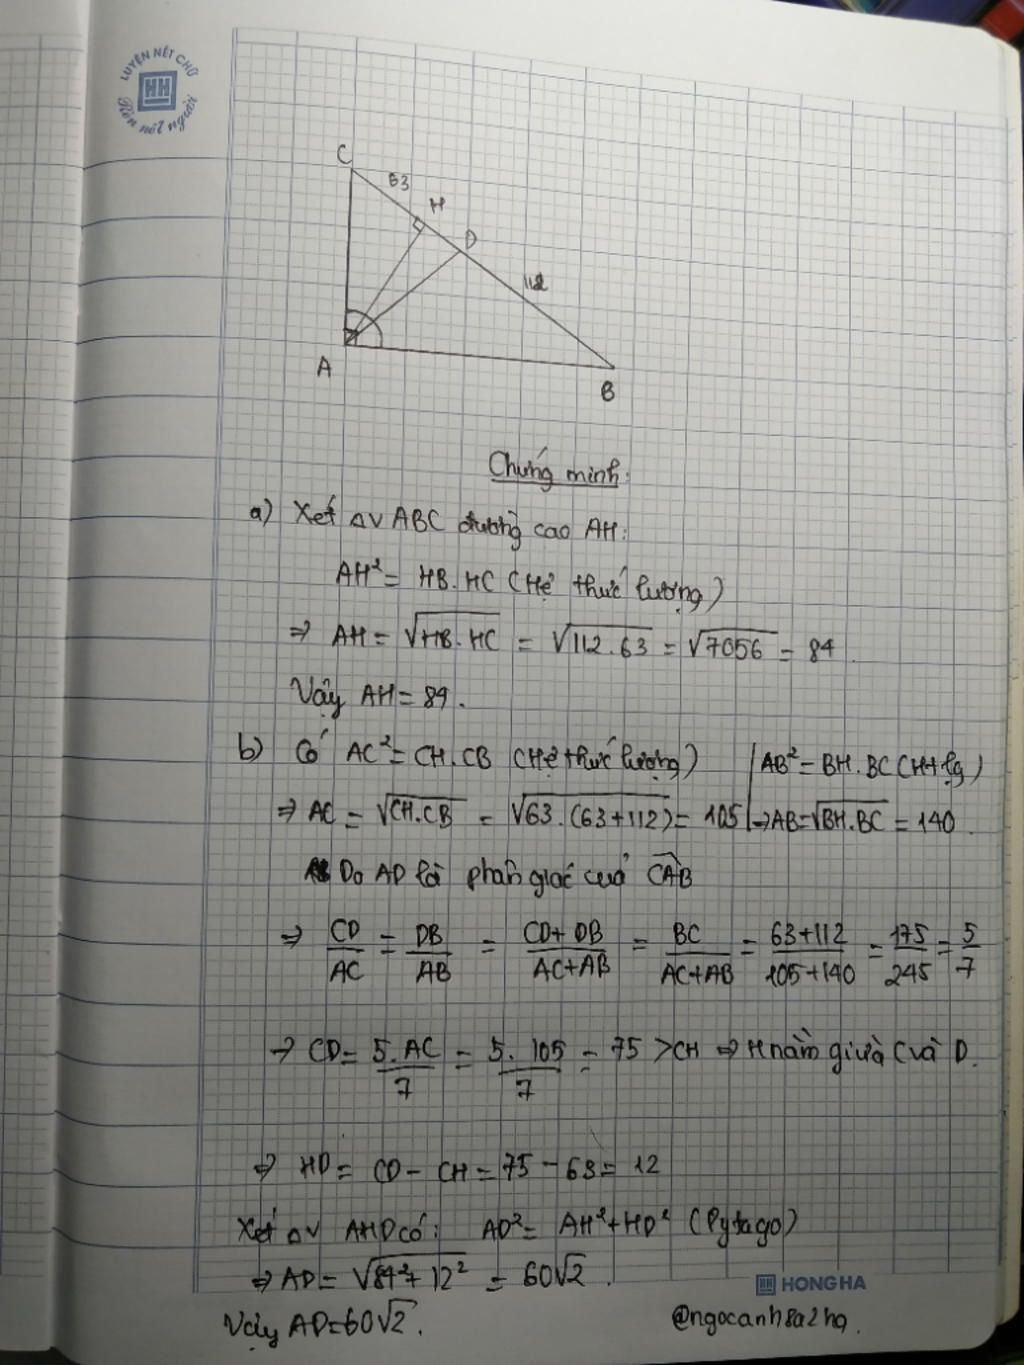 LUYỆN NÉT CHỮ
HH
Rèn nết người
C
63
H
D
112
A
B
Chứng minh:
a) Xét ΔV ABC đường cao AH:
AH² = HB.HC (Hệ thức lượng)
⇒ AH = √HB.HC = √112.63 = √7056 = 84.
Vậy AH = 84.
b) Có AC² = CH.CB (Hệ thức lượng) | AB² = BH.BC (H+lg)
⇒ AC = √CH.CB = √63.(63+112) = 105 | ⇒ AB = √BH.BC = 140.
Do AD là phân giác của CAB
⇒ CD/AC = DB/AB = CD+DB/AC+AB = BC/AC+AB = 63+112/105+140 = 175/245 = 5/7
→ CD = 5.AC/7 = 5.105/7 = 75 > CH ⇒ H nằm giữa C và D.
⇒ HD = CD - CH = 75 - 63 = 12
Xét ΔV AHD có: AD² = AH² + HD² (Pytago)
⇒ AD = √84²+12² = 60√2.
HH HONG HA
Vậy AD = 60√2.
@ngocanh8a2hq.